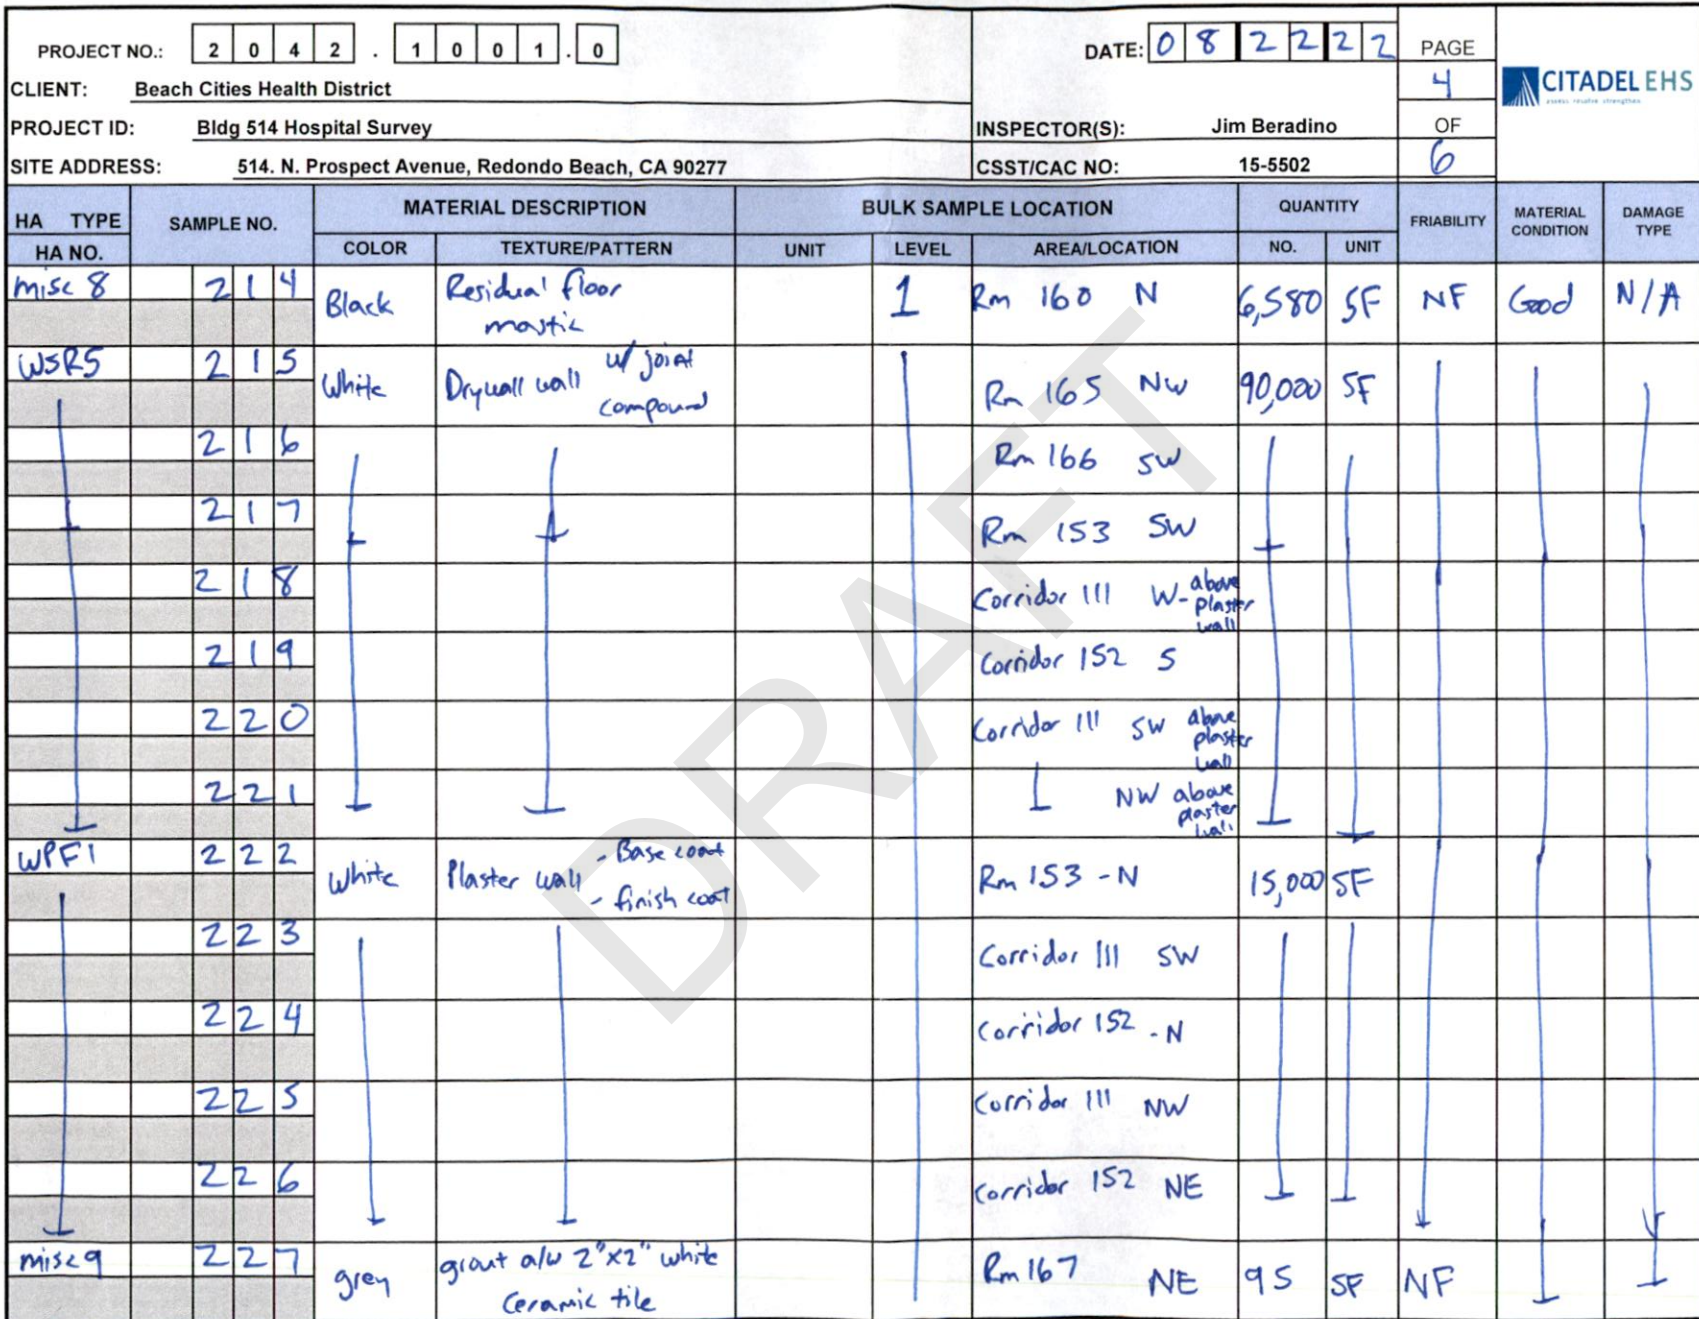 PROJECT NO.: 2 0 4 2 . 1 0 0 1 . 0 DATE: 0 8 2 2 2 2 PAGE
4
CITADEL EHS
CLIENT: Beach Cities Health District
PROJECT ID: Bldg 514 Hospital Survey INSPECTOR(S): Jim Beradino OF
SITE ADDRESS: 514. N. Prospect Avenue, Redondo Beach, CA 90277 CSST/CAC NO: 15-5502 6
HA TYPE SAMPLE NO. MATERIAL DESCRIPTION BULK SAMPLE LOCATION QUANTITY FRIABILITY MATERIAL CONDITION DAMAGE TYPE
HA NO. COLOR TEXTURE/PATTERN UNIT LEVEL AREA/LOCATION NO. UNIT
misc 8 2 1 4 Black Residual floor mastic 1 Rm 160 N 6,580 SF NF Good N/A
WSR5 2 1 5 White Drywall wall w/ joint compound Rm 165 NW 90,000 SF
2 1 6 Rm 166 SW
2 1 7 Rm 153 SW
2 1 8 Corridor 111 W- above plaster wall
2 1 9 Corridor 152 S
2 2 0 Corridor 111 SW above plaster wall
2 2 1 NW above plaster wall
WPF1 2 2 2 White Plaster wall - Base coat - finish coat Rm 153 - N 15,000 SF
2 2 3 Corridor 111 SW
2 2 4 Corridor 152 - N
2 2 5 Corridor 111 NW
2 2 6 Corridor 152 NE
misc 9 2 2 7 grey grout a/w 2"x2" white ceramic tile Rm 167 NE 95 SF NF
DRAFT